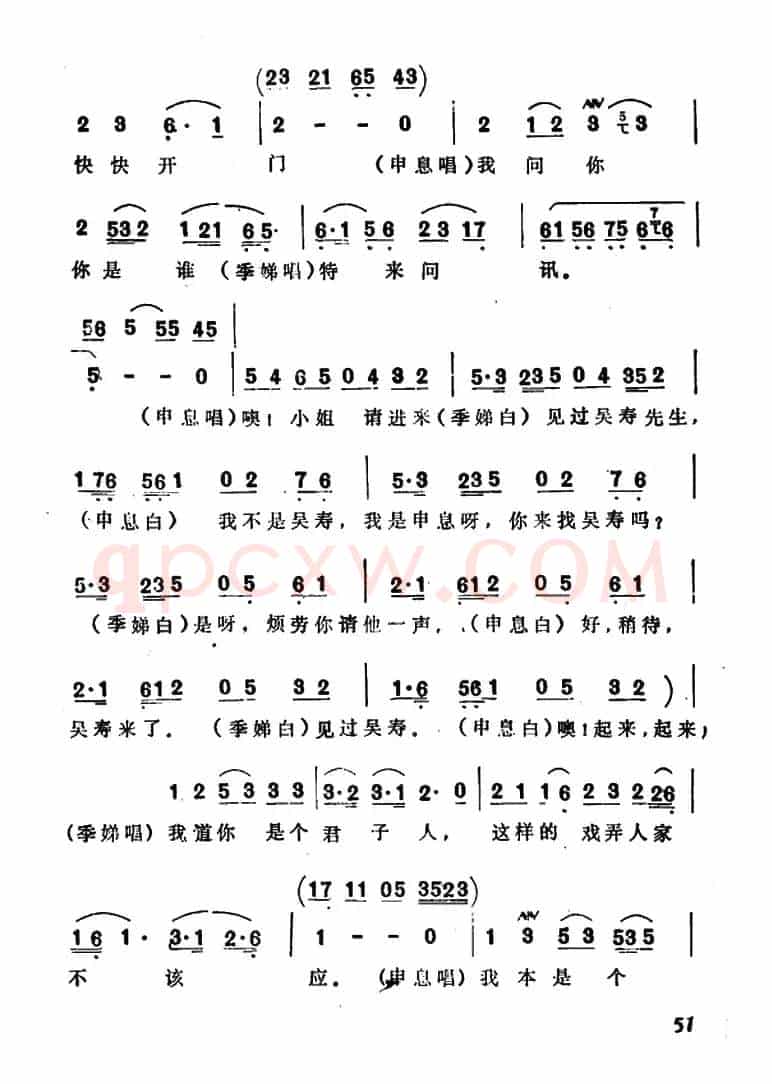 (23 21 65 43)
2 3 6· 1 | 2 - - 0 | 2 1 2 3 3 |
快快开 门 (申息唱)我 问 你
2 532 121 65· | 6·1 56 23 17 | 61 56 75 67 |
你是 谁 (季娣唱)特 来 问 讯。
56 5 55 45
5 - - 0 | 5 4 6 5 0 4 3 2 | 5·3 235 0 4 352 |
(申息唱)噢！小姐 请进来(季娣白)见过吴寿先生，
176 561 0 2 7 6 | 5·3 235 0 2 7 6 |
(申息白) 我不是吴寿，我是申息呀，你来找吴寿吗？
qpcxw.com
5·3 235 0 5 6 1 | 2·1 612 0 5 6 1 |
(季娣白)是呀，烦劳你请他一声，(申息白)好，稍待，
2·1 612 0 5 3 2 | 1·6 561 0 5 3 2 ) |
吴寿来了。(季娣白)见过吴寿。(申息白)噢！起来，起来；
1 2 5 3 3 3 | 3·2 3·1 2· 0 | 2 1 1 6 2 3 2 26 |
(季娣唱)我道你 是个 君 子 人， 这样的 戏弄人家
(17 11 05 3523)
1 6 1· 3·1 2·6 | 1 - - 0 | 1 3 5 3 535 |
不 该 应。(申息唱)我 本 是 个
51